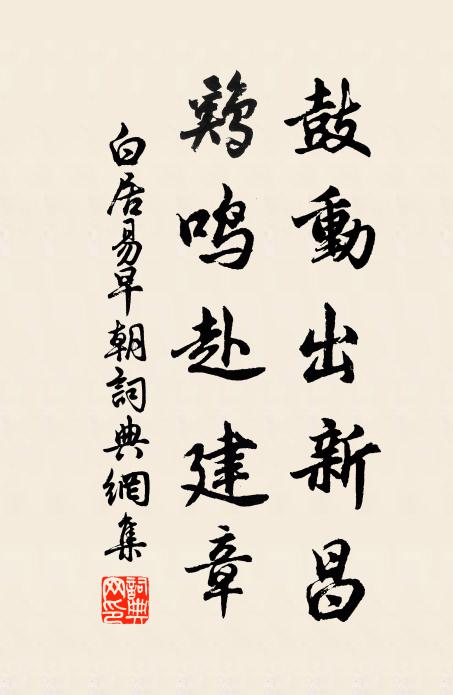 鼓動出新昌
鷄鳴赴建章
白居易早朝詞典網集
詞典網印